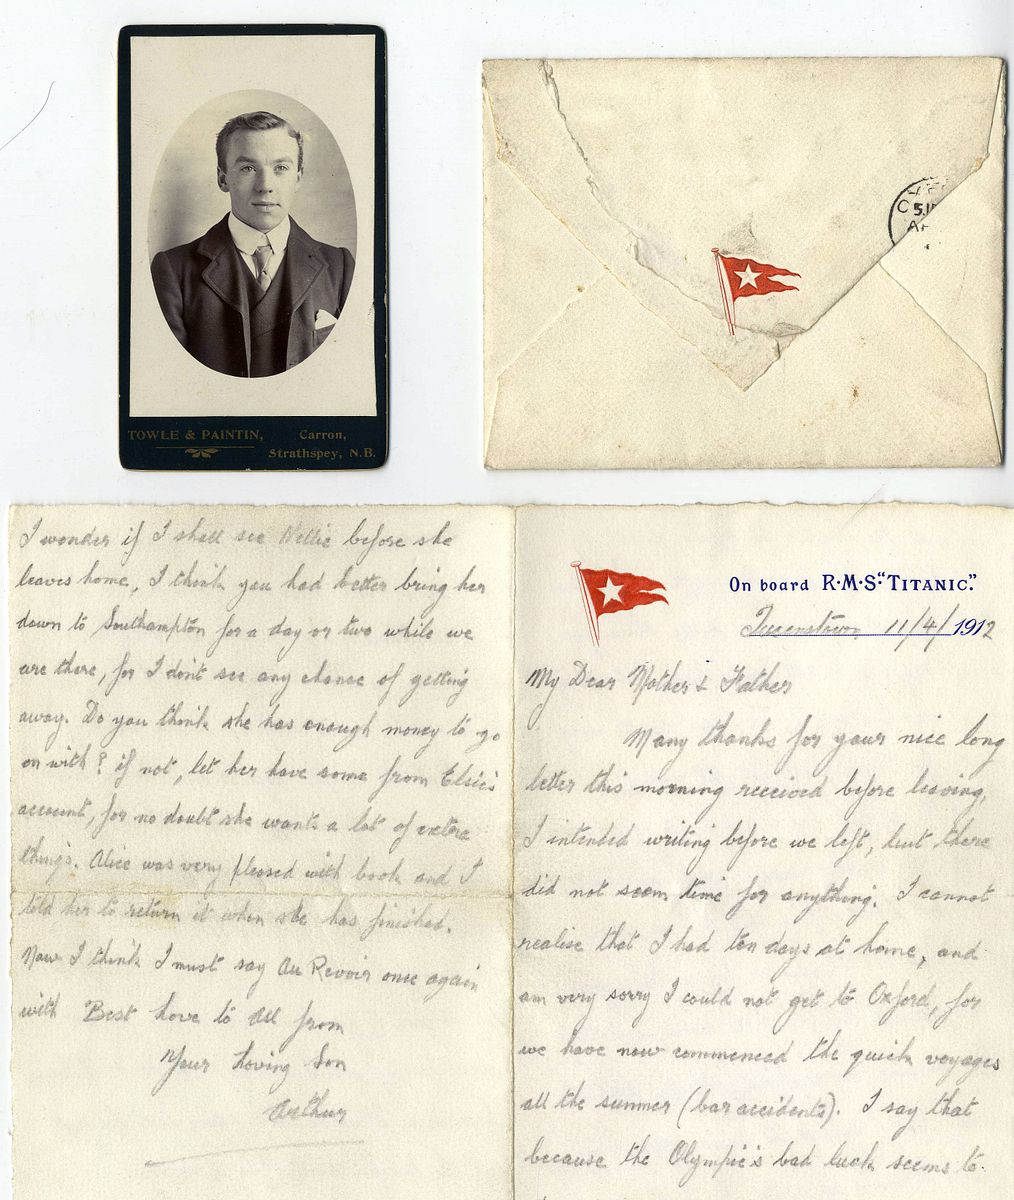 TOWLE & PAINTIN, Carron,
Strathspey, N.B.
5.15
I wonder if I shall see Nellie before she
leaves home, I think you had better bring her
down to Southampton for a day or two while we
are there, for I don't see any chance of getting
away. Do you think she has enough money to go
on with? if not, let her have some from Elsie's
account, for no doubt she wants a lot of extra
things. Alice was very pleased with book and I
told her to return it when she has finished.
Now I think I must say Au Revoir once again
with Best Love to all from
Your Loving Son
Arthur
On board R·M·S·"TITANIC."
Queenstown 11/4/1912
My Dear Mother & Father
Many thanks for your nice long
letter this morning received before leaving,
I intended writing before we left, but there
did not seem time for anything. I cannot
realise that I had ten days at home, and
am very sorry I could not get to Oxford, for
we have now commenced the quick voyages
all the summer (bar accidents). I say that
because the Olympic's bad luck seems to